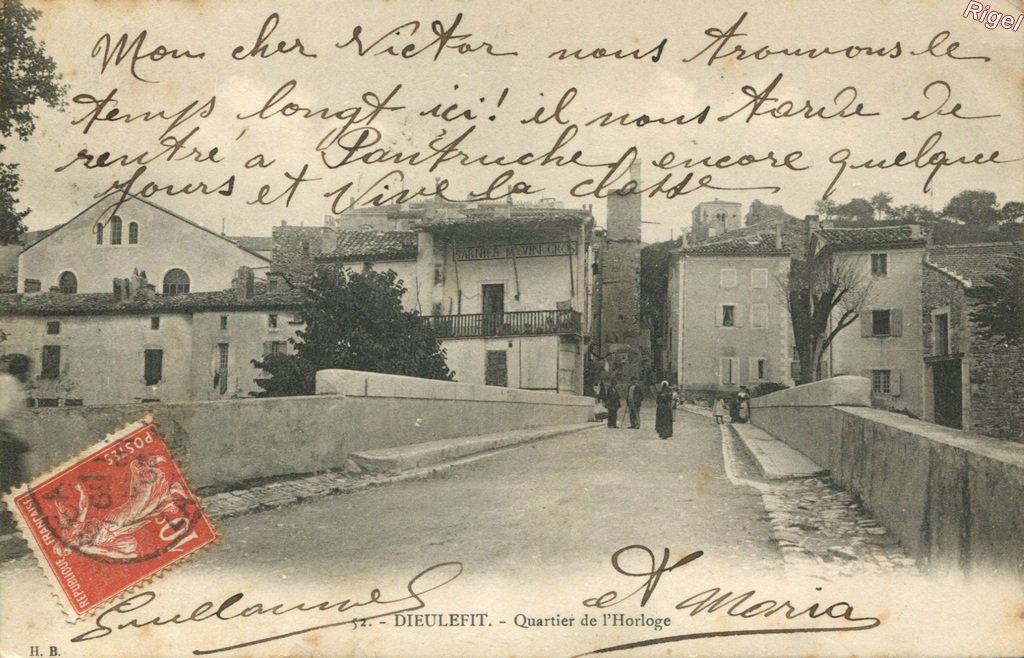 Rigel
Mon cher Victor nous trouvons le
temps longt ici! il nous tarde de
rentré a Pantruche encore quelque
jours et vive la classe
GARNIER VIN GROS
POSTES
10c
RÉPUBLIQUE FRANÇAISE
Guillaume
et Maria
52. - DIEULEFIT. - Quartier de l'Horloge
H. B.